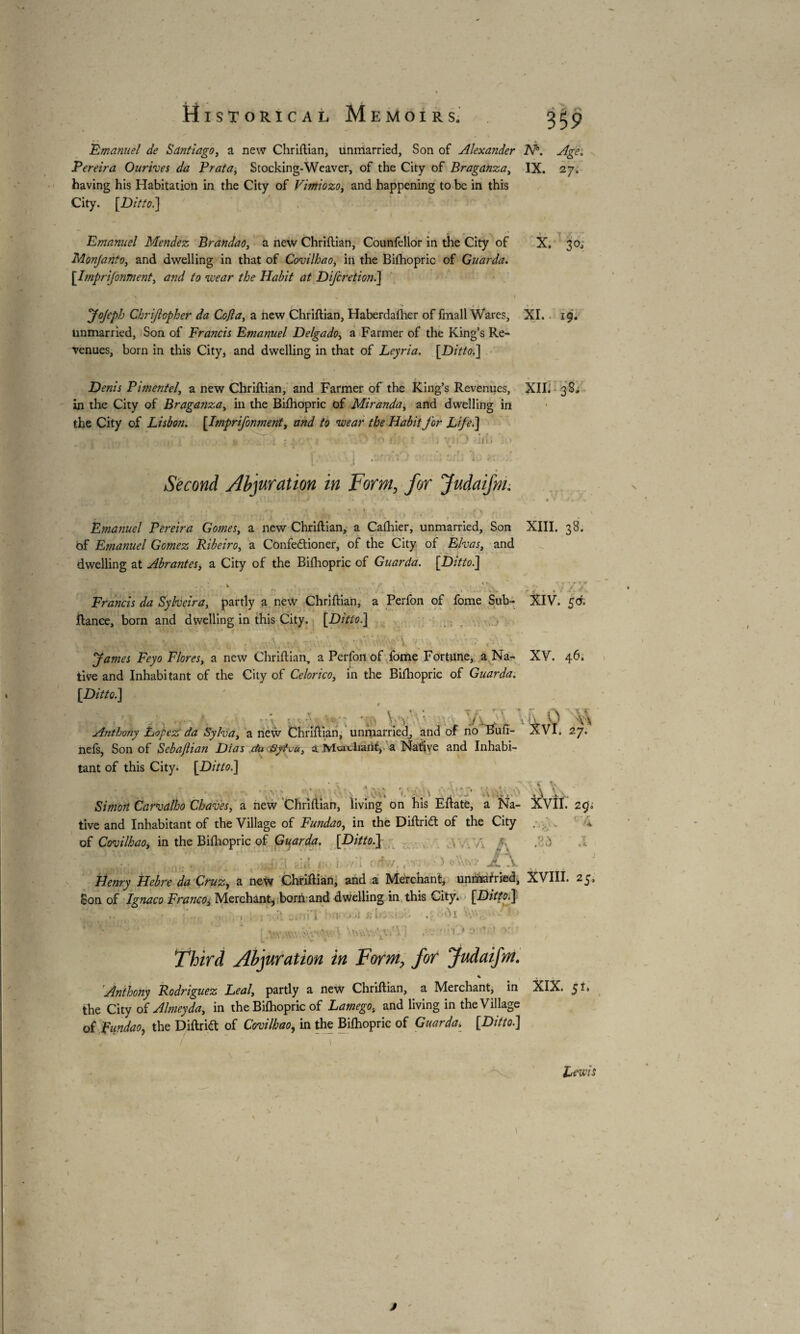 Historical Memoirs. 359
Emanuel de Santiago, a new Chriſtian, unmarried, Son of Alexander Nº. Age.
Pereira Ourives da Prata, Stocking-Weaver, of the City of Braganza, IX. 27.
having his Habitation in the City of Vimiozo, and happening to be in this
City. [Ditto.]
Emanuel Mendez Brandao, a new Chriſtian, Counſellor in the City of X. 30.
Monſanto, and dwelling in that of Covilhao, in the Biſhopric of Guarda.
[Impriſonment, and to wear the Habit at Diſcretion.]
Joſeph Chriſtopher da Coſta, a new Chriſtian, Haberdaſher of ſmall Wares, XI. 19.
unmarried, Son of Francis Emanuel Delgado, a Farmer of the King's Re-
venues, born in this City, and dwelling in that of Leyria. [Ditto.]
Denis Pimentel, a new Chriſtian, and Farmer of the King's Revenues, XII. 38.
in the City of Braganza, in the Biſhopric of Miranda, and dwelling in
the City of Lisbon. [Impriſonment, and to wear the Habit for Life.]
Second Abjuration in Form, for Judaiſm.
Emanuel Pereira Gomes, a new Chriſtian, a Caſhier, unmarried, Son XIII. 38.
of Emanuel Gomez Ribeiro, a Confectioner, of the City of Elvas, and
dwelling at Abrantes, a City of the Biſhopric of Guarda. [Ditto.]
Francis da Sylveira, partly a new Chriſtian, a Perſon of ſome Sub- XIV. 56.
ſtance, born and dwelling in this City. [Ditto.]
James Feyo Flores, a new Chriſtian, a Perſon of ſome Fortune, a Na- XV. 46.
tive and Inhabitant of the City of Celorico, in the Biſhopric of Guarda.
[Ditto.]
Anthony Lopez da Sylva, a new Chriſtian, unmarried, and of no Buſi- XVI. 27.
neſs, Son of Sebaſtian Dias da Sylva, a Merchant, a Native and Inhabi-
tant of this City. [Ditto.]
Simon Carvalho Chaves, a new Chriſtian, living on his Eſtate, a Na- XVII. 29.
tive and Inhabitant of the Village of Fundao, in the Diſtrict of the City
of Covilhao, in the Biſhopric of Guarda. [Ditto.]
Henry Hebre da Cruz, a new Chriſtian, and a Merchant, unmarried, XVIII. 25.
Son of Ignaco Franco, Merchant, born and dwelling in this City. [Ditto.]
Third Abjuration in Form, for Judaiſm.
Anthony Rodriguez Leal, partly a new Chriſtian, a Merchant, in XIX. 51.
the City of Almeyda, in the Biſhopric of Lamego, and living in the Village
of Fundao, the Diſtrict of Covilhao, in the Biſhopric of Guarda. [Ditto.]
Lewis